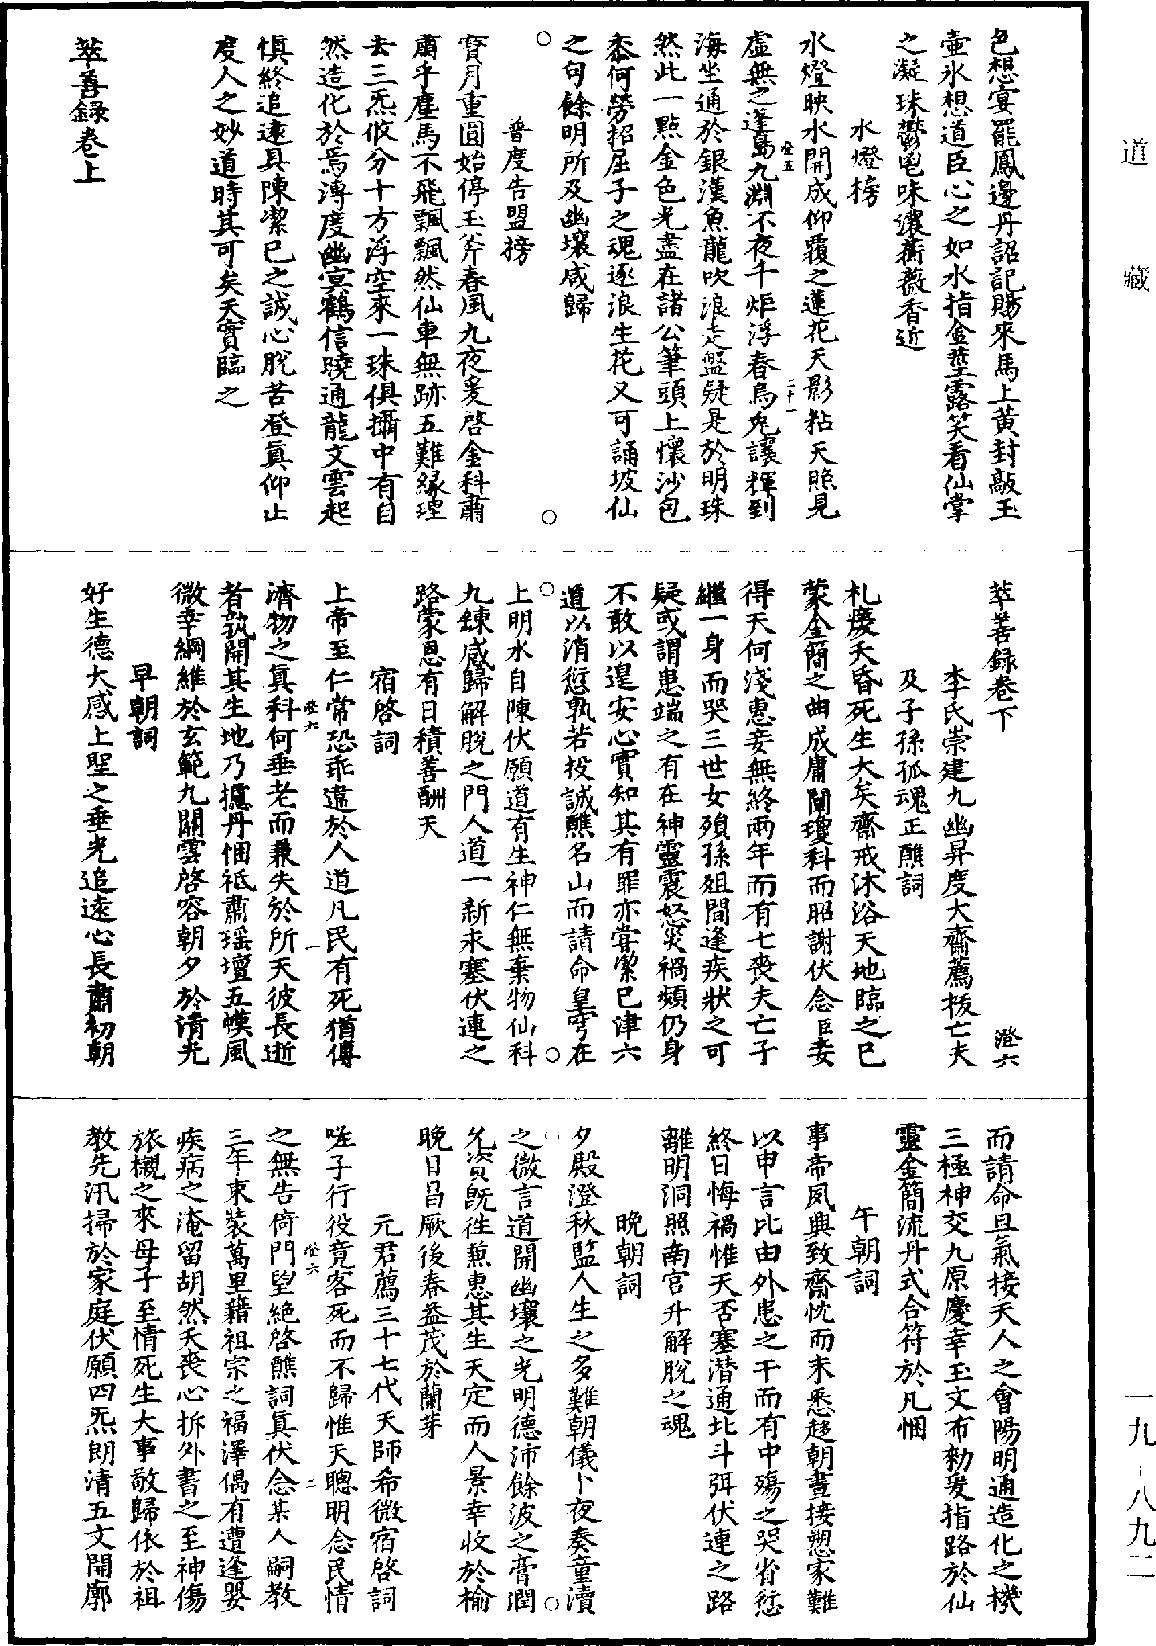 道藏
一九－八九二
色想宴罷鳳邊丹詔記賜來馬上黄封敲玉
壷氷想道臣心之如水指金莖露笑看仙掌
之凝珠鬱鬯味濃薔薇香近
水燈榜
水燈映水開成仰覆之蓮花天影粘天照見
虛無之蓬島九淵不夜千炬浮春烏兎讓輝到
海坐通於銀漢魚龍吹浪走盤疑是於明珠
然此一點金色光盡在諸公筆頭上懷沙包
黍何勞招屈子之魂逐浪生花又可誦坡仙
之句餘明所及幽壤咸歸
普度告盟榜
寳月重圓始停玉斧春風九夜爰啓金科肅
肅乎塵馬不飛飄飄然仙車無跡五難緣理
去三炁攸分十方浮空來一珠俱攝中有自
然造化於焉溥度幽冥鶴信曉通龍文雲起
愼終追遠具陳潔巳之誠心脫苦登眞仰止
度人之妙道時其可矣天實臨之
萃善録卷上
萃善録卷下 澄六
李氏崇建九幽昇度大齋薦拔亡夫
及子孫孤魂正醮詞
札慶夭昏死生大矣齋戒沐浴天地臨之巳
蒙金簡之曲成庸闡瓊科而昭謝伏念臣妾
得天何淺惠妾無終兩年而有七喪夫亡子
繼一身而哭三世女殞孫殂間逢疾狀之可
疑或謂患端之有在神靈震怒災禍頻仍身
不敢以遑安心實知其有罪亦甞潔巳津六
道以消愆孰若投誠醮名山而請命皇穹在
上明水自陳伏願道有生神仁無棄物仙科
九鍊咸歸解脫之門人道一新永塞伏連之
路蒙恩有日積善酬天
宿啓詞
上帝至仁常恐乖違於人道凡民有死猶傳
濟物之眞科何垂老而兼失於所天彼長逝
者孰開其生地乃攄丹悃祇肅瑶壇五幙風
微幸綱維於玄範九關雲啓容朝夕於清光
早朝詞
好生德大感上聖之垂光追遠心長肅初朝
而請命旦氣接天人之會陽明通造化之機
三極神交九原慶幸玉文布勑爰指路於仙
靈金簡流丹式合符於凡悃
午朝詞
事帝夙興致齋忱而未悉趍朝晝接愬家難
以申言比由外患之干而有中殤之哭省愆
終日悔禍惟天否塞潜通北斗弭伏連之路
離明洞照南宮升解脫之魂
晚朝詞
夕殿澄秋監人生之多難朝儀卜夜奏童瀆
之微言道開幽壤之光明德沛餘波之膏潤
允資旣往兼惠其生天定而人景幸收於榆
晚日昌厥後春益茂於蘭芽
元君薦三十七代天師希微宿啓詞
嗟子行役竟客死而不歸惟天聰明念民情
之無告倚門望絶啓醮詞眞伏念某人嗣教
三年束裝萬里藉祖宗之福澤偶有遭逢嬰
疾病之淹留胡然夭喪心拆外書之至神傷
旅櫬之來母子至情死生大事敬歸依於祖
教先汛掃於家庭伏願四炁朗清五文開廓